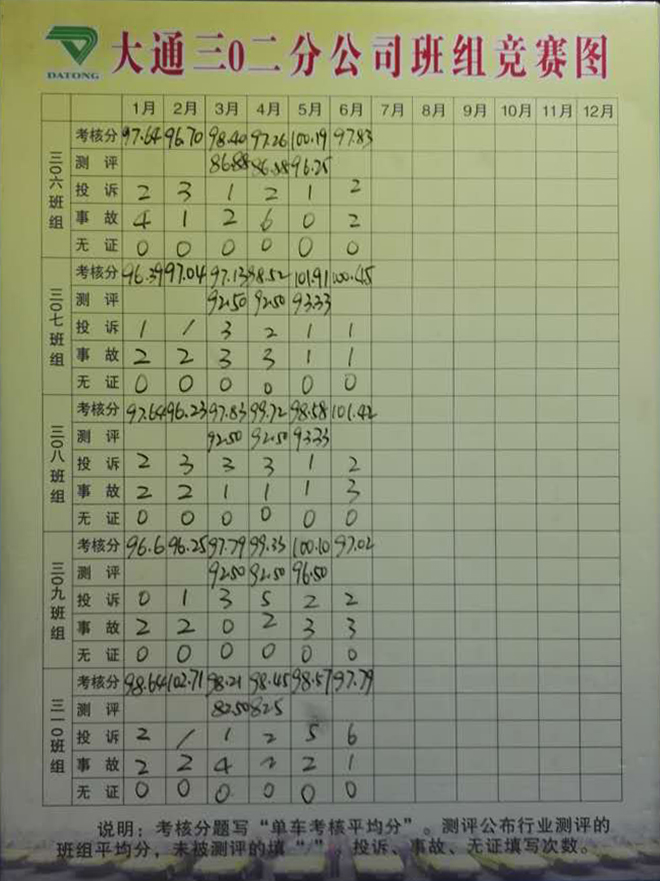 DATONG
大通三0二分公司班组竞赛图
1月 2月 3月 4月 5月 6月 7月 8月 9月 10月 11月 12月
三0六班组
考核分 97.64 96.70 98.40 97.26 100.19 97.83
测评 86.88 86.88 96.25
投诉 2 3 1 2 1 2
事故 4 1 2 6 0 2
无证 0 0 0 0 0 0
三0七班组
考核分 96.39 97.04 97.13 98.52 101.91 100.45
测评 92.50 92.50 93.33
投诉 1 / 3 2 1 1
事故 2 2 3 3 1 1
无证 0 0 0 0 0 0
三0八班组
考核分 97.64 96.23 97.83 99.72 98.58 101.42
测评 92.50 92.50 93.33
投诉 2 3 3 3 1 2
事故 2 2 1 1 1 3
无证 0 0 0 0 0 0
三0九班组
考核分 96.6 96.25 97.79 99.33 100.10 97.02
测评 92.50 92.50 96.50
投诉 0 1 3 5 2 2
事故 2 2 0 2 3 3
无证 0 0 0 0 0 0
三一0班组
考核分 98.64 102.71 98.21 98.45 98.57 97.79
测评 82.50 82.5
投诉 2 / 1 2 5 6
事故 2 2 4 2 2 1
无证 0 0 0 0 0 0
说明：考核分题写“单车考核平均分”。测评公布行业测评的
班组平均分，未被测评的填“/”。投诉、事故、无证填写次数。